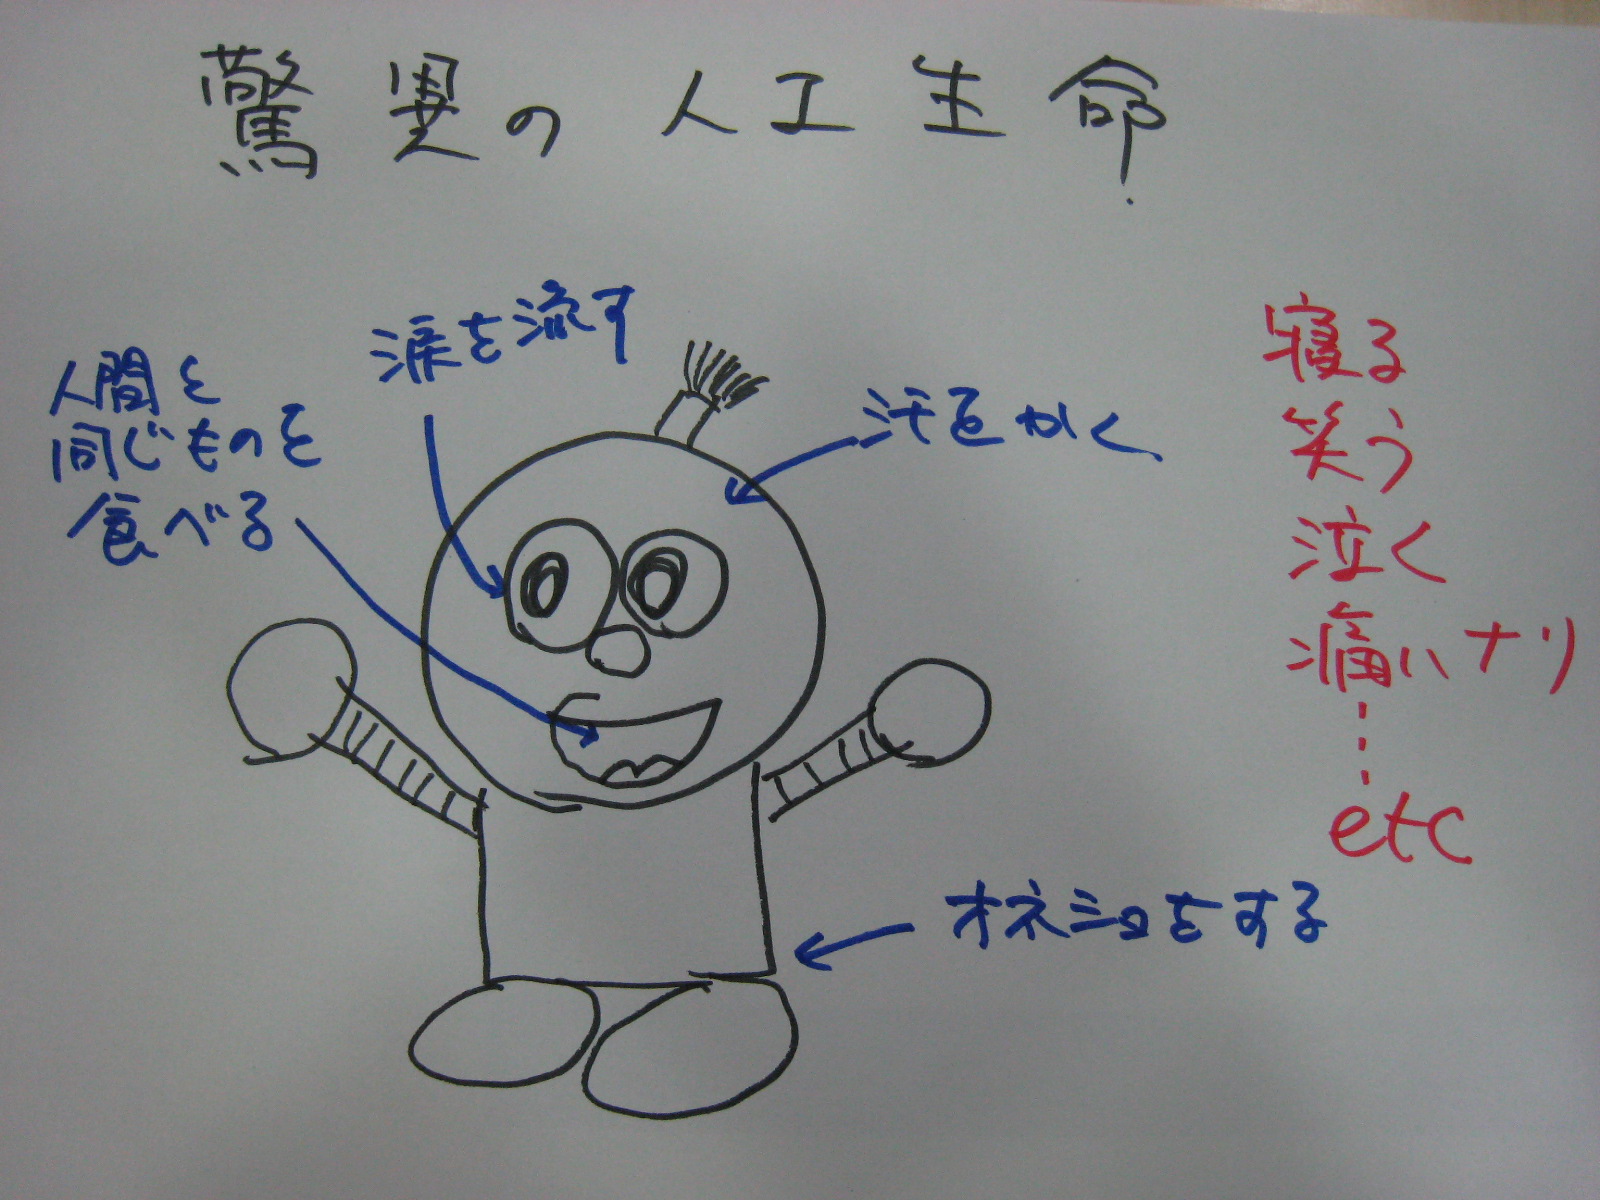 驚異の人工生命
涙を流す
人間と
同じものを
食べる
汗をかく
オネショをする
寝る
笑う
泣く
痛いナリ
etc